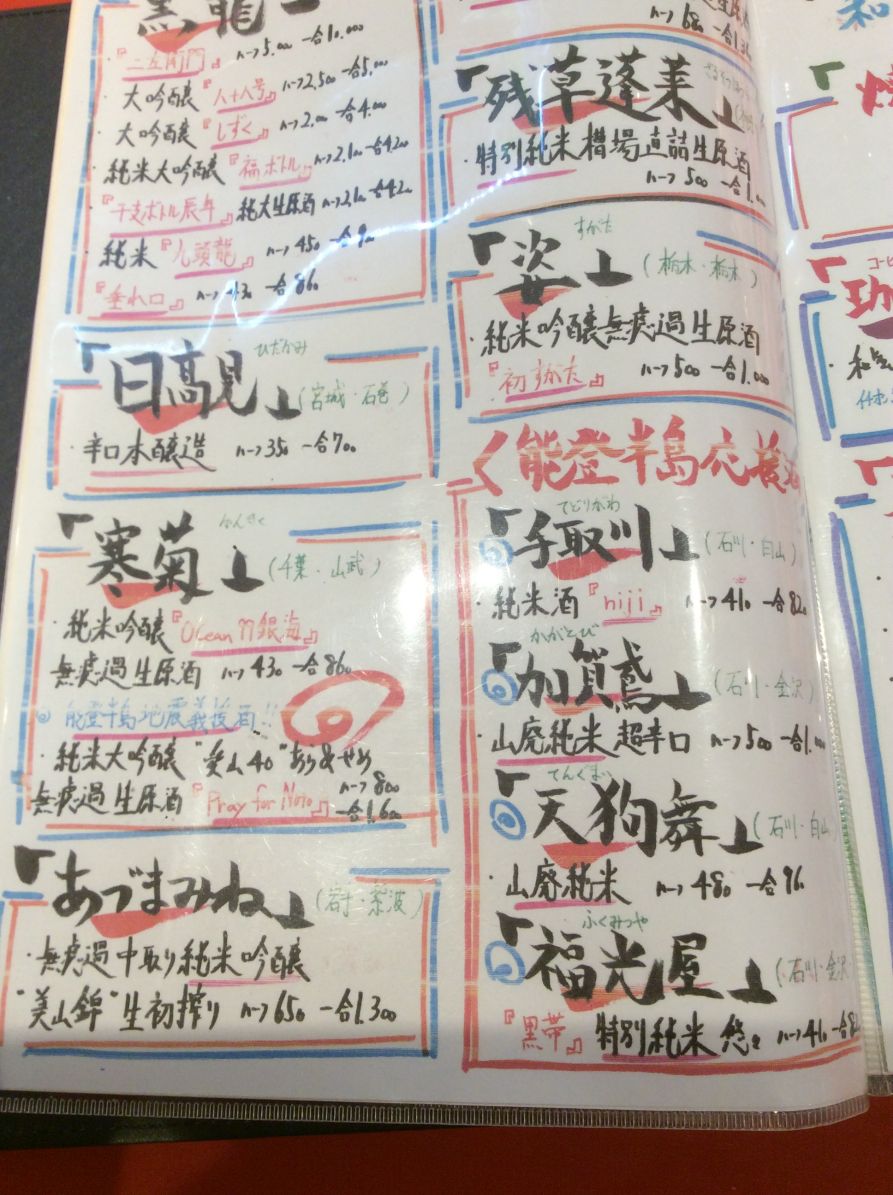 黒龍
『二左衛門』 ハーフ5,000 一合10,000
大吟醸『八十八号』 ハーフ2,500 一合5,000
・大吟醸『しずく』 ハーフ2,000 一合4,000
・純米大吟醸『福ボトル』 ハーフ2,100 一合4,200
・『干支ボトル辰年』純大生原酒 ハーフ2,100 一合4,200
・純米『九頭龍』 ハーフ450 一合900
・『垂れ口』 ハーフ430 一合860
ひだかみ
「日高見」(宮城・石巻)
・辛口本醸造 ハーフ350 一合700
かんきく
「寒菊」(千葉・山武)
・純米吟醸『Ocean 99 銀海』
無濾過生原酒 ハーフ430 一合860
◎ 能登半島地震義援酒!!
・純米大吟醸 "愛山40" あら&せめ
無濾過生原酒『Pray for Noto』 ハーフ800
一合1,600
「あづまみね」(岩手・紫波)
・無濾過中取り純米吟醸
"美山錦"生初搾り ハーフ650 一合1,300
ハーフ680
「残草蓬莱」
・特別純米槽場直詰生原酒
ハーフ500 一合1,000
すがた
「姿」(栃木・栃木)
・純米吟醸無濾過生原酒
『初すがた』 ハーフ500 一合1,000
〈能登半島応援酒
てどりがわ
◎「手取川」(石川・白山)
・純米酒『niji』 ハーフ410 一合820
かがとび
◎「加賀鳶」(石川・金沢)
・山廃純米超辛口 ハーフ500 一合1,000
てんぐまい
◎「天狗舞」(石川・白山)
・山廃純米 ハーフ480 一合960
ふくみつや
◎「福光屋」(石川・金沢)
『黒帯』特別純米 悠々 ハーフ410 一合820